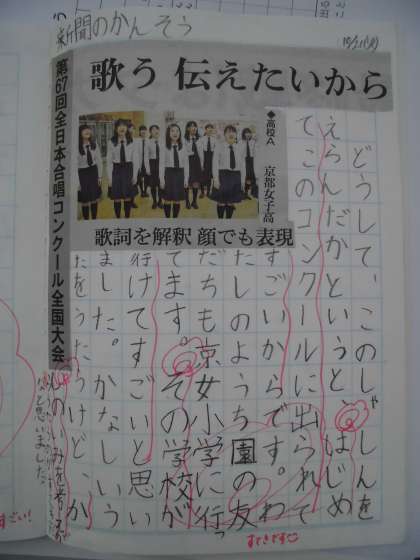 新聞のかんそう
歌う 伝えたいから
第67回全日本合唱コンクール全国大会
◆高校A 京都女子高
歌詞を解釈 顔でも表現
どうして、このしゃしんを
えらんだかというと、はじめ
てこのコンクールに出られて
すごいからです。わ
たしのようち園の友
だちも京女小学に行っ
てます。その学校が
行けてすごいと思い
ました。かなしいう
たをうたうけど、か
しのいみを考え
と思いました。
すてきです
すごい!